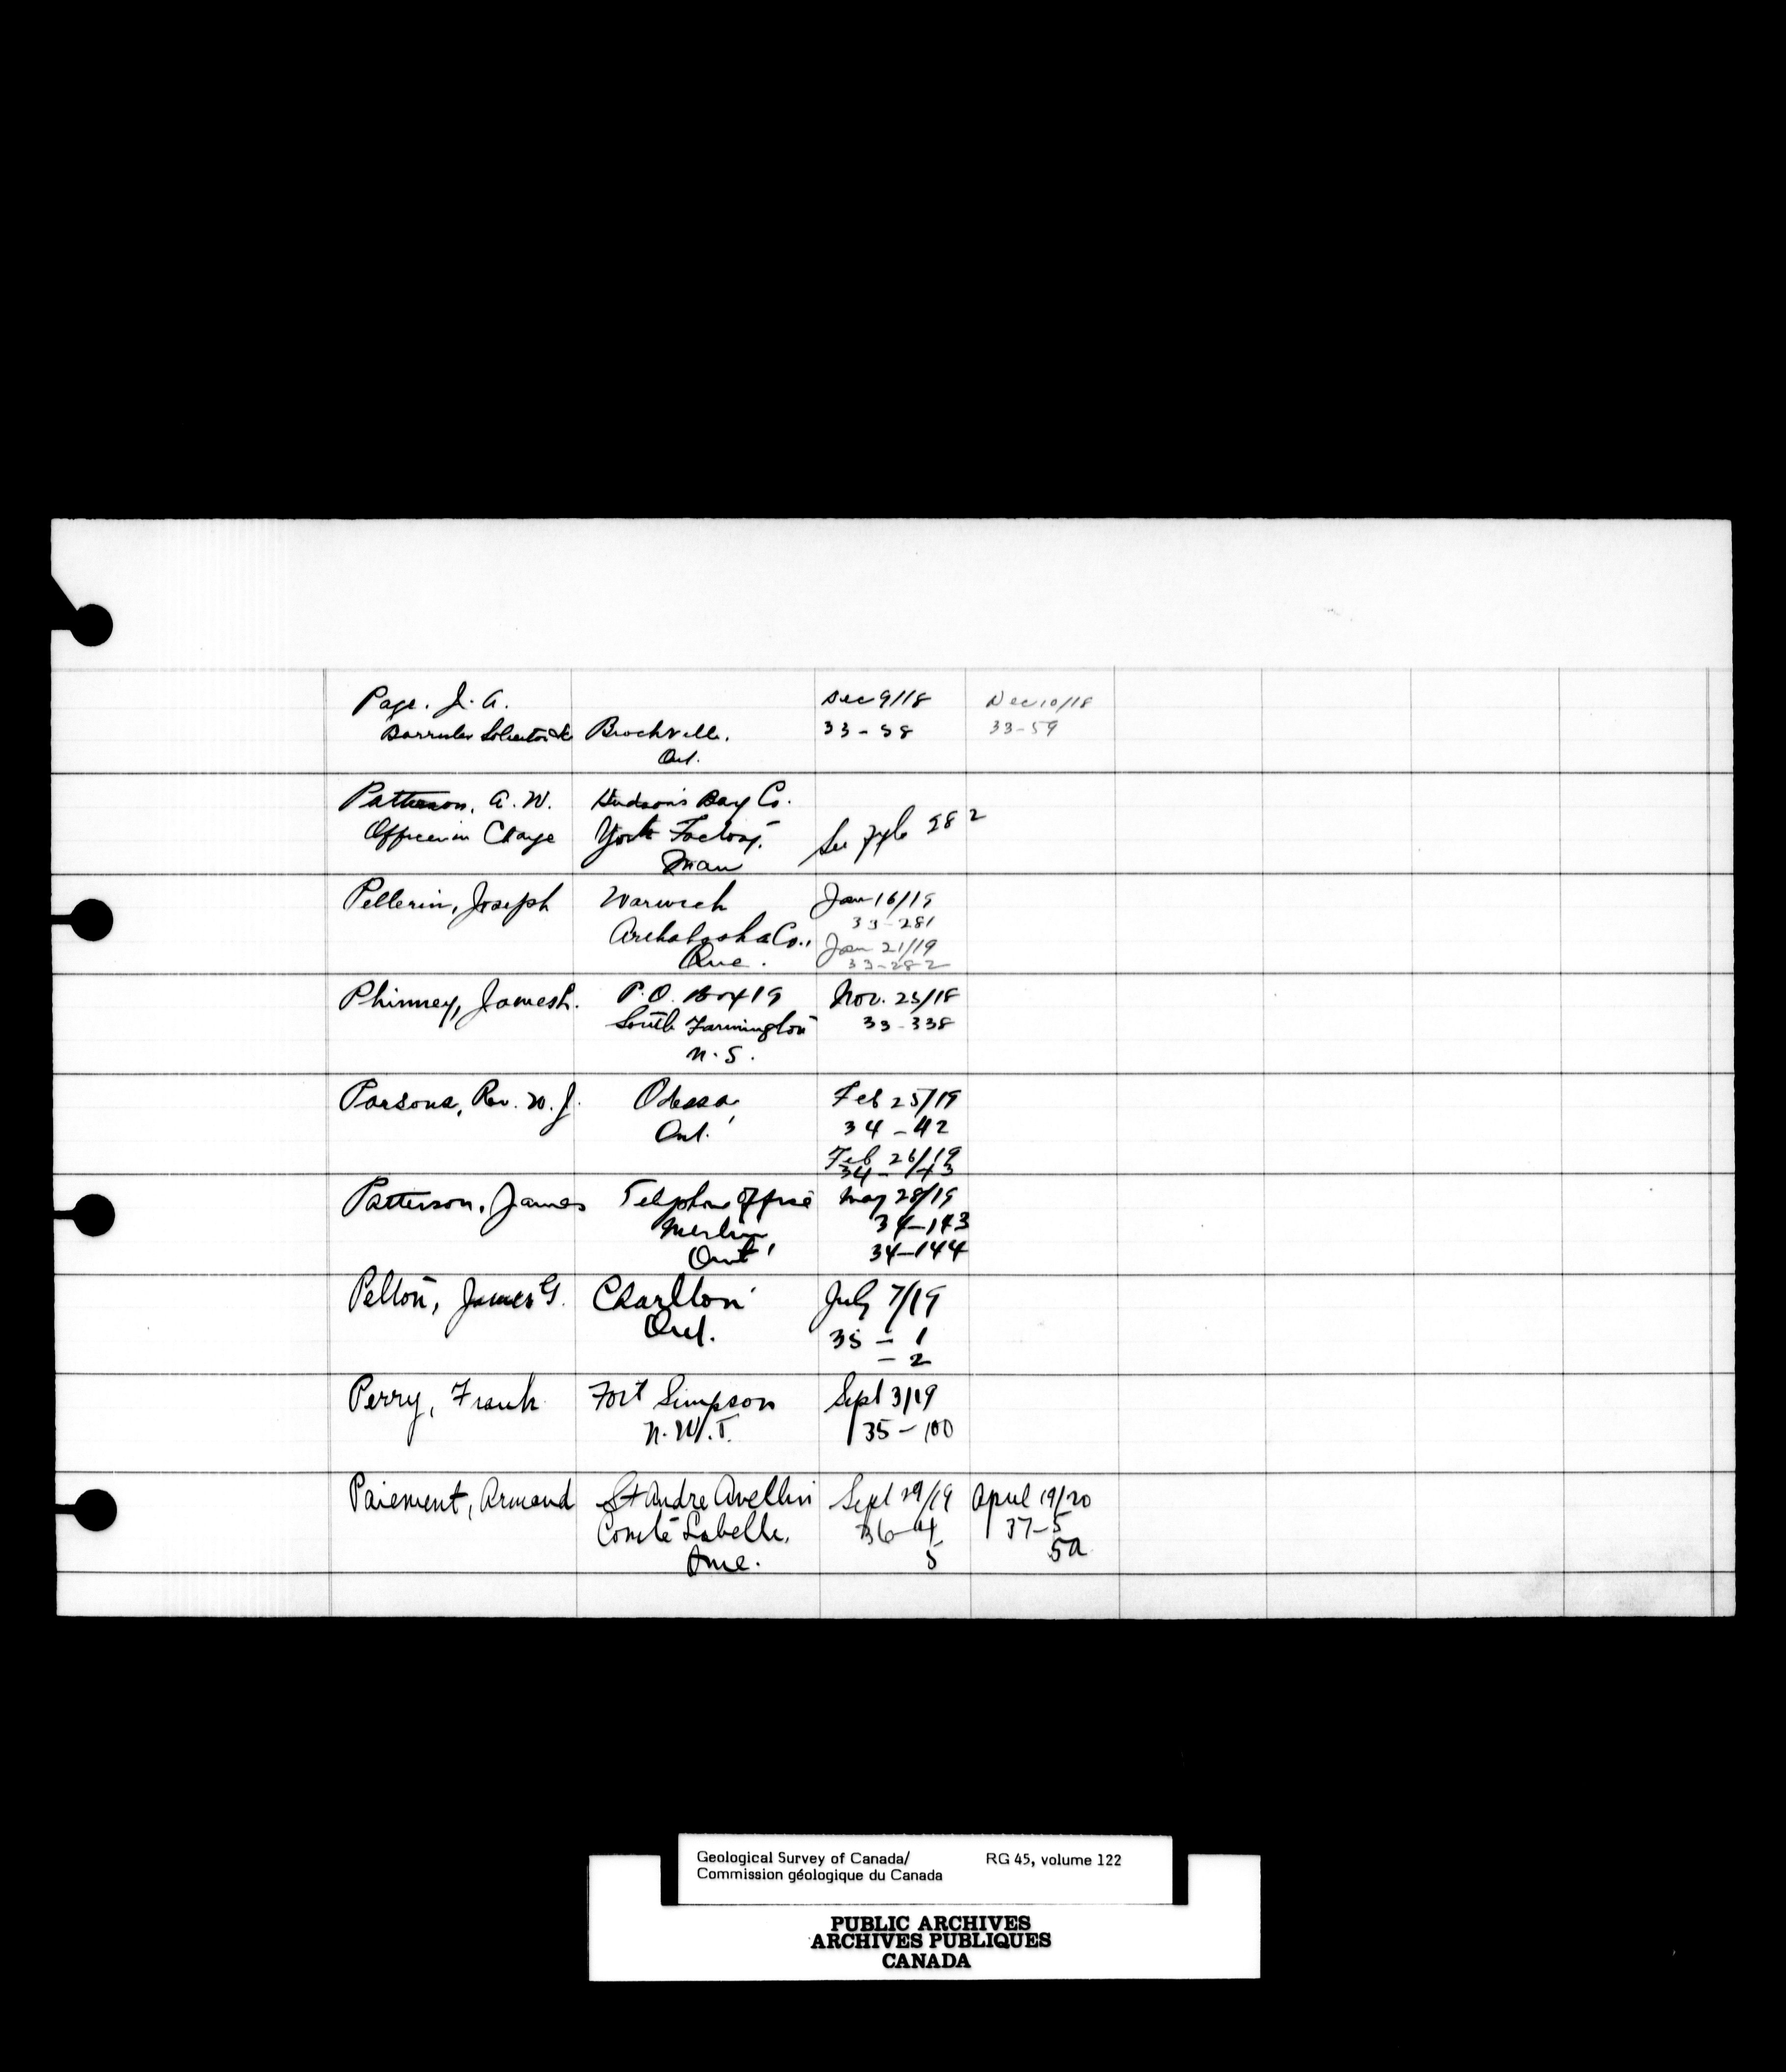 Page. J. A. Dec 9/18 Dec 10/18
Barrister Solicitor &c Brockville, 33-58 33-59
Ont.
Patterson, A. W. Hudson's Bay Co.
Officer in Charge York Factory, See file 282
Man
Pellerin, Joseph Warwick Jan 16/19
33-281
Arthabaska Co., Jan 21/19
Que. 33-282
Phinney, James L. P.O. Box 19 Nov. 25/18
South Farmington 33-338
N.S.
Parsons, Rev. W. J. Odessa, Feb 25/19
Ont. 34-42
Feb 26/19
34-43
Patterson, James Telephone Office May 28/19
Merlin 34-143
Ont 34-144
Pelton, James G. Charlton July 7/19
Ont. 35-1
-2
Perry, Frank Fort Simpson Sept 3/19
N.W.T. 35-100
Paiement, Armand St Andre Avellin Sept 29/19 April 19/20
Comté Labelle, 36-4 37-5
Que. 5 5a
Geological Survey of Canada/ RG 45, volume 122
Commission géologique du Canada
PUBLIC ARCHIVES
ARCHIVES PUBLIQUES
CANADA